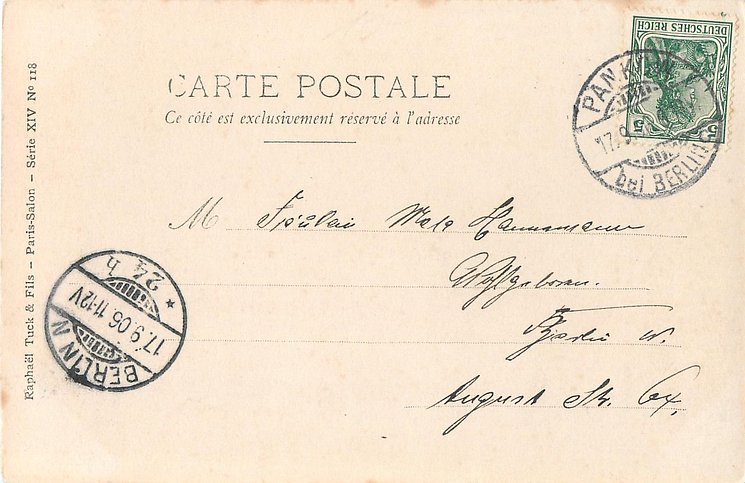 CARTE POSTALE
Ce côté est exclusivement réservé à l'adresse
DEUTSCHES REICH
5 5
PANKOW
17.9.
bei BERLIN
M Fräulein Hannemann
Wohlgeboren.
Berlin N.
August Str. 64,
BERLIN N
17.9.06. 11-12V
* 24 h
Raphaël Tuck & Fils — Paris-Salon — Série XIV No 118